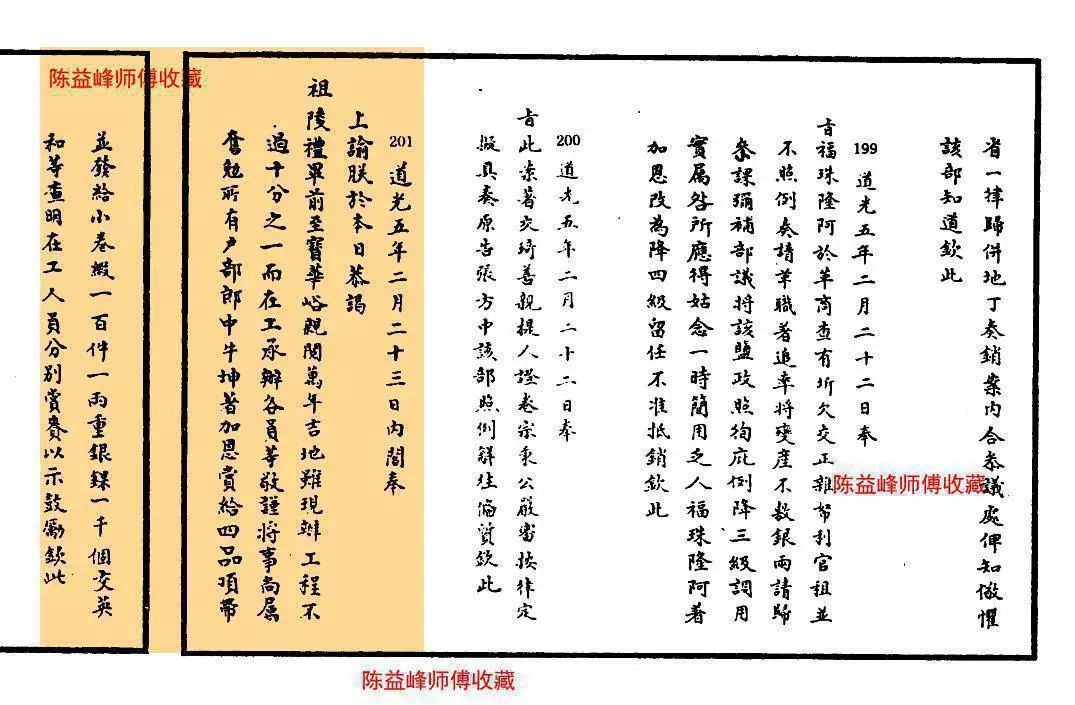 省一律歸併地丁奏銷案內合叅議處俾知儆懼
該部知道欽此
199 道光五年二月二十二日奉
旨福珠隆阿於革商查有圻欠交正雜帑利官租並
不照例奏請革職著追率將變產不敷銀兩請歸
叅課彌補部議將該鹽政照徇庇例降三級調用
實屬咎所應得姑念一時簡用乏人福珠隆阿著
加恩改為降四級留任不准抵銷欽此
200 道光五年二月二十二日奉
旨此案著交琦善親提人證卷宗秉公嚴審按律定
擬具奏原告張方中該部照例解往備質欽此
201 道光五年二月二十三日內閣奉
上諭朕於本日恭謁
祖陵禮畢前至寶華峪親閱萬年吉地雖現辦工程不
過十分之一而在工承辦各員等敬謹將事尚屬
奮勉所有戶部郎中牛坤著加恩賞給四品頂帶
並發給小卷緞一百件一兩重銀錁一千個交英
和等查明在工人員分別賞賚以示鼓勵欽此
陈益峰师傅收藏
陈益峰师傅收藏
陈益峰师傅收藏